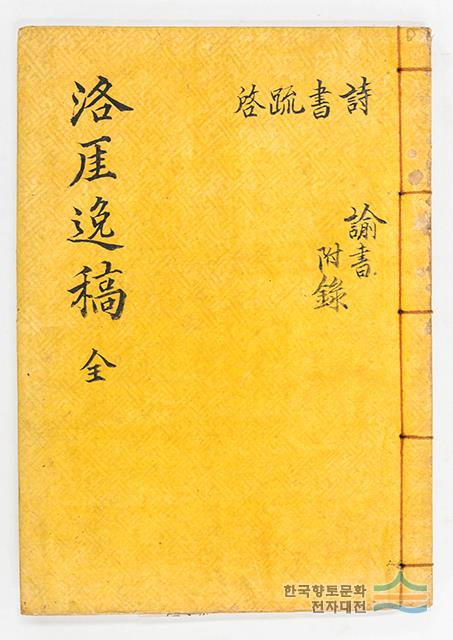 詩書疏啓
諭書
附錄
洛厓逸稿 全
한국향토문화
전자대전